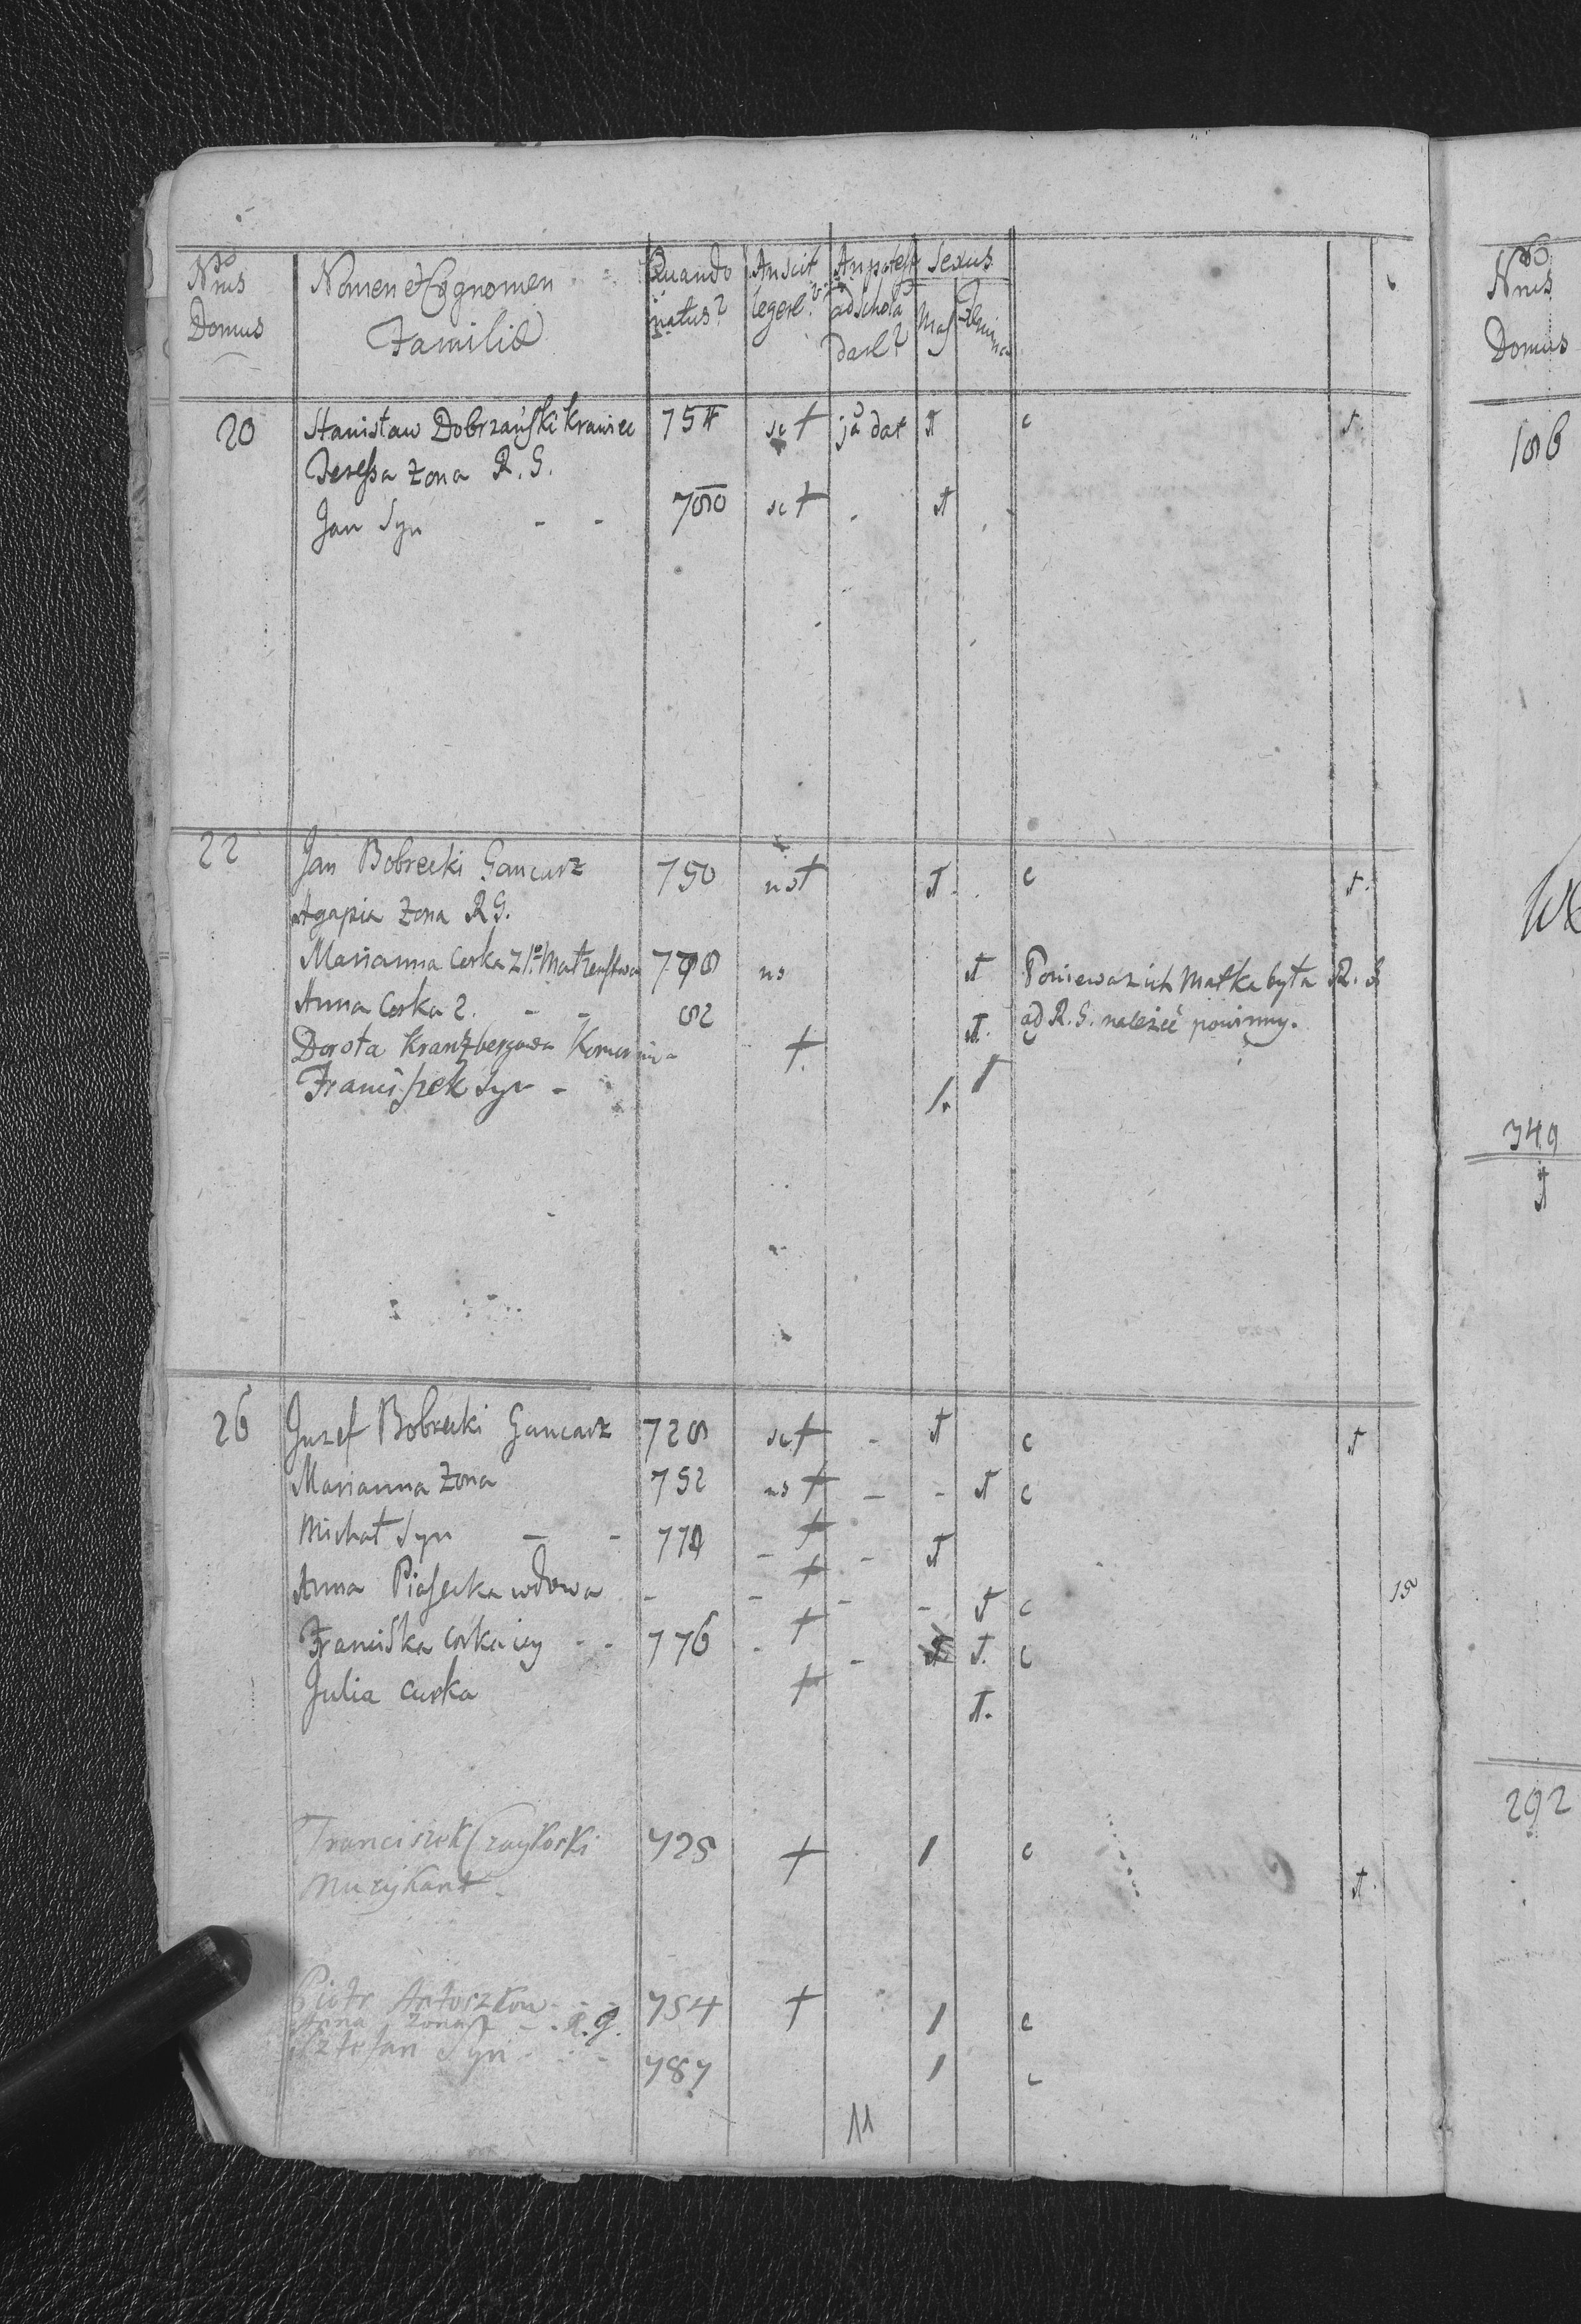 Nrus Domus | Nomen et Cognomen Familiæ | Quando natus? | An scit legere? | An potest ad schola dare? | Sexus Mas Femina
20 Stanisław Dobrzański Krawiec 754 sc + ja dat 1 c 1.
Teressa żona R. G.
Jan Syn - - 780 sc + . 1
22 Jan Bobrecki Gancarz 750 ns + 1. c 1.
Agapia żona R G.
Marianna Corka z 1º Małżenstwa 778 ns 1 Ponieważ ich Matka była R. G
Anna Corka 2. - - 82 1. ad R. G. należeć powinny.
Dorota Kranzbergowa + 1
Franciszek Syn - 1.
26 Juzef Bobrecki Gancarz 728 sc + - 1 c 1
Marianna żona 752 ns + - - 1 c
Michał Syn - - 778 - + - 1
Anna Piasecka wdowa - - + - - 1 c 15
Franciska Corka iey - - 776 - + - 1. c
Julia curka + 1.
Franciszek Czaykoski 725 + 1 c
Muzykant 1.
Piotr Antoszkow - - 754 + 1 c
Anna żona - - R. G.
Sztefan Syn - - 787 1 c
11
Nrus
Domus
186
349
1
292